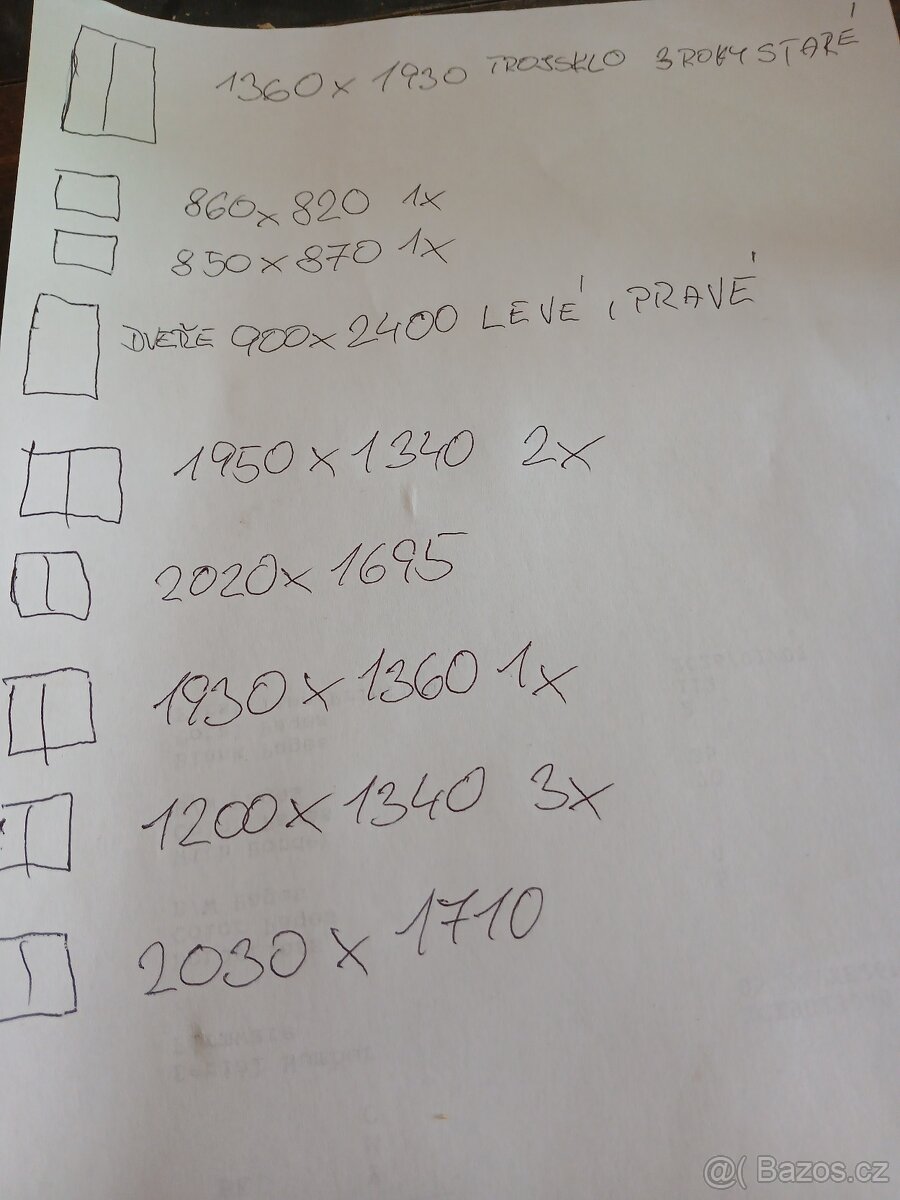 1360x1930 TROJSKLO 3 ROKY STARÉ
860x820 1x
850x870 1x
DVEŘE 900x2400 LEVÉ I PRAVÉ
1950x1340 2x
2020x1695
1930x1360 1x
1200x1340 3x
2030x1710
@( Bazos.cz